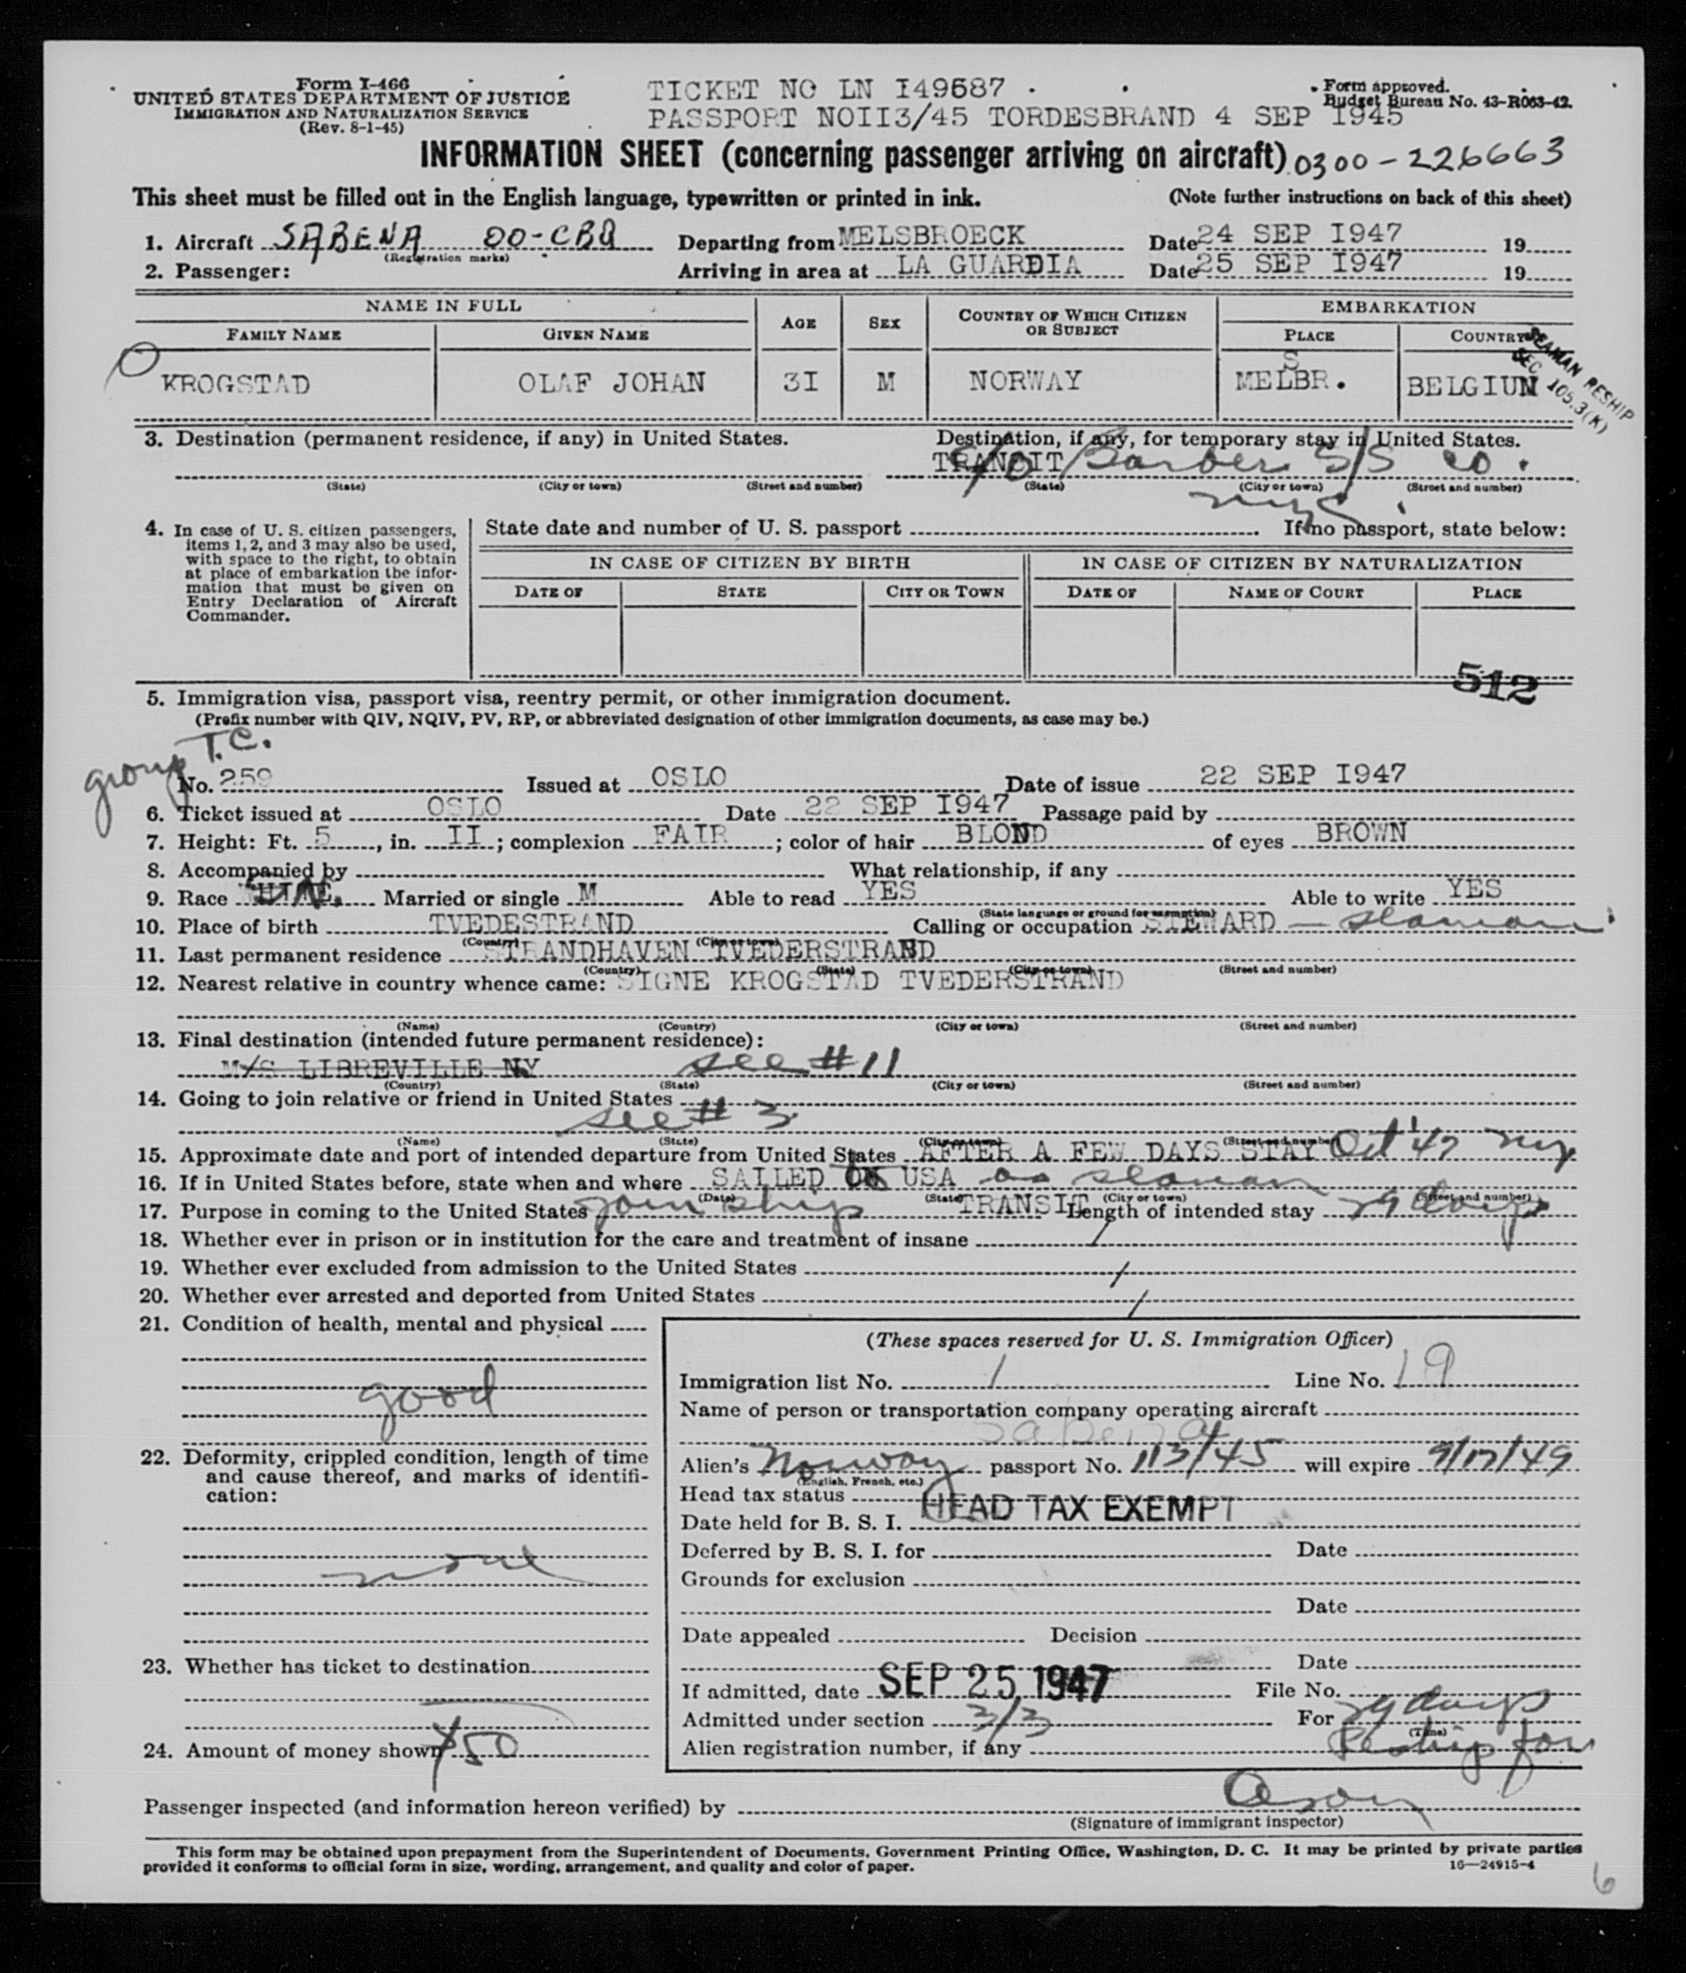 Form I-466
UNITED STATES DEPARTMENT OF JUSTICE
IMMIGRATION AND NATURALIZATION SERVICE
(Rev. 8-1-45)
TICKET NO LN I49587
PASSPORT NOII3/45 TORDESBRAND 4 SEP 1945
Form approved.
Budget Bureau No. 43-R063-42.
INFORMATION SHEET (concerning passenger arriving on aircraft) 0300-226663
This sheet must be filled out in the English language, typewritten or printed in ink. (Note further instructions on back of this sheet)
1. Aircraft SABENA OO-CBQ Departing from MELSBROECK Date 24 SEP I947 19
(Registration marks)
2. Passenger: Arriving in area at LA GUARDIA Date 25 SEP I947 19
NAME IN FULL AGE SEX COUNTRY OF WHICH CITIZEN OR SUBJECT EMBARKATION
FAMILY NAME GIVEN NAME PLACE COUNTRY
KROGSTAD OLAF JOHAN 3I M NORWAY MELBR. S BELGIUN
SEAMAN RESHIP
SEC 105.3(K)
3. Destination (permanent residence, if any) in United States. Destination, if any, for temporary stay in United States.
TRANSIT c/o Barber S/S Co.
(State) (City or town) (Street and number) (State) (City or town) (Street and number)
NYC
4. In case of U. S. citizen passengers, items 1, 2, and 3 may also be used, with space to the right, to obtain at place of embarkation the information that must be given on Entry Declaration of Aircraft Commander.
State date and number of U. S. passport If no passport, state below:
IN CASE OF CITIZEN BY BIRTH IN CASE OF CITIZEN BY NATURALIZATION
DATE OF STATE CITY OR TOWN DATE OF NAME OF COURT PLACE
512
5. Immigration visa, passport visa, reentry permit, or other immigration document.
(Prefix number with QIV, NQIV, PV, RP, or abbreviated designation of other immigration documents, as case may be.)
group T.C.
No. 259 Issued at OSLO Date of issue 22 SEP I947
6. Ticket issued at OSLO Date 22 SEP I947 Passage paid by
7. Height: Ft. 5, in. II; complexion FAIR; color of hair BLOND of eyes BROWN
8. Accompanied by What relationship, if any
9. Race Married or single M Able to read YES Able to write YES
(State language or ground for exemption)
10. Place of birth TVEDESTRAND Calling or occupation STEWARD — seaman
(Country) (City or town)
11. Last permanent residence STRANDHAVEN TVEDERSTRAND
(Country) (State) (City or town) (Street and number)
12. Nearest relative in country whence came: SIGNE KROGSTAD TVEDERSTRAND
(Name) (Country) (City or town) (Street and number)
13. Final destination (intended future permanent residence):
M/S LIBREVILLE NY see #11
(Country) (State) (City or town) (Street and number)
14. Going to join relative or friend in United States
see # 3
(Name) (State) (City or town) (Street and number)
15. Approximate date and port of intended departure from United States AFTER A FEW DAYS STAY Oct '47 NY
16. If in United States before, state when and where SAILED ON USA as seaman
(Date) (State) (City or town) (Street and number)
17. Purpose in coming to the United States join ship TRANSIT Length of intended stay 29 days
18. Whether ever in prison or in institution for the care and treatment of insane /
19. Whether ever excluded from admission to the United States /
20. Whether ever arrested and deported from United States /
21. Condition of health, mental and physical
good
22. Deformity, crippled condition, length of time and cause thereof, and marks of identification:
none
23. Whether has ticket to destination
24. Amount of money shown $50
(These spaces reserved for U. S. Immigration Officer)
Immigration list No. 1 Line No. 19
Name of person or transportation company operating aircraft
Sabena
Alien's Norway passport No. 113/45 will expire 9/17/49
(English, French, etc.)
Head tax status HEAD TAX EXEMPT
Date held for B. S. I.
Deferred by B. S. I. for Date
Grounds for exclusion
Date
Date appealed Decision
Date
If admitted, date SEP 25 1947 File No.
Admitted under section 3/3 For 29 days
(Time)
Alien registration number, if any Reship for
Passenger inspected (and information hereon verified) by
(Signature of immigrant inspector)
This form may be obtained upon prepayment from the Superintendent of Documents, Government Printing Office, Washington, D. C. It may be printed by private parties
provided it conforms to official form in size, wording, arrangement, and quality and color of paper. 16—24915-4
6